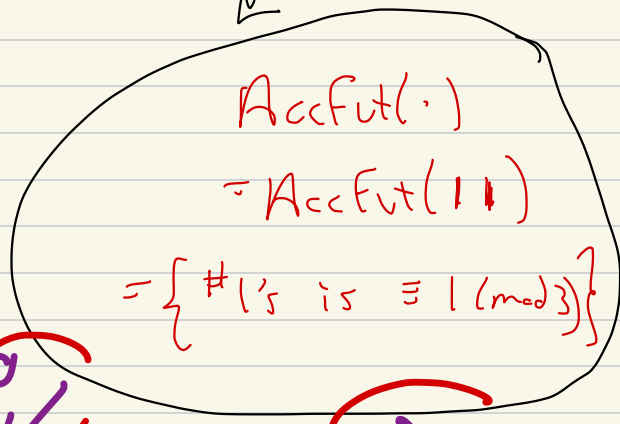 AccFut(·)
= AccFut(11)
= {#1's is ≡ 1 (mod 3)}